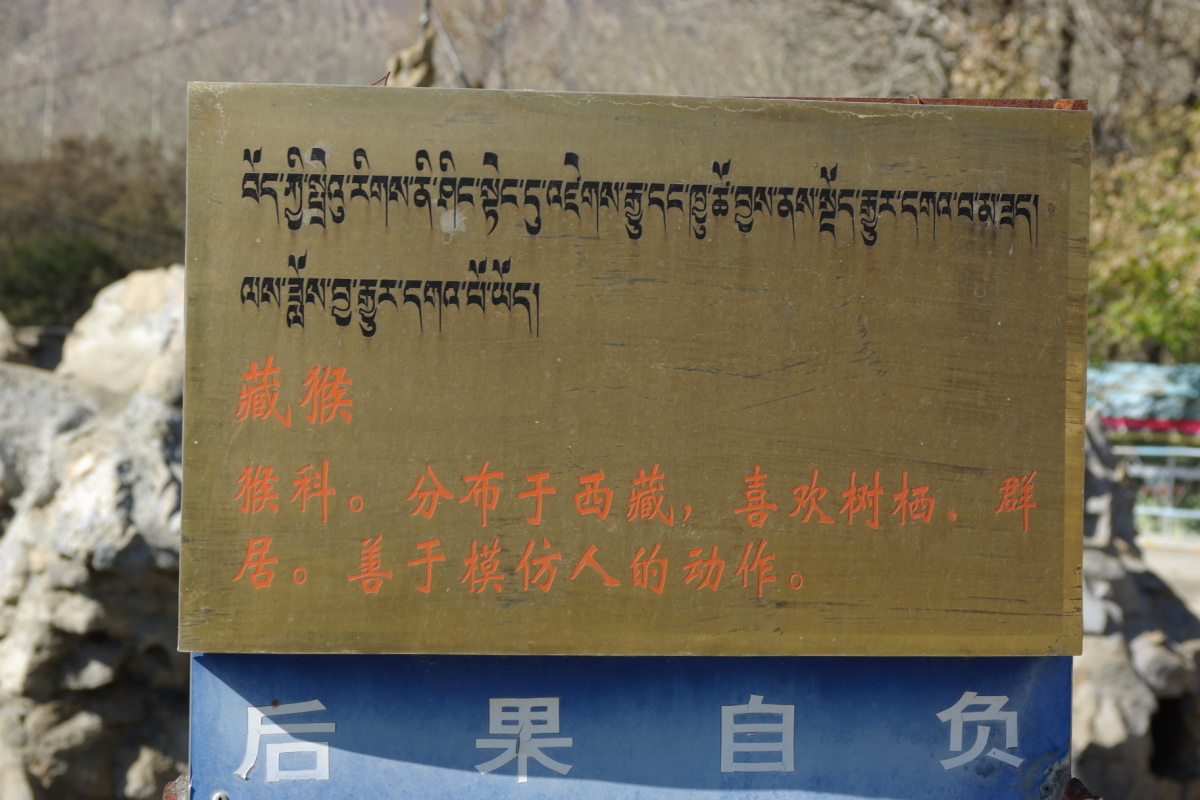 བོད་ཀྱི་སྤྲེའུ་རིགས་ནི་ཤིང་སྟེང་དུ་འཛེགས་རྒྱུ་དང་ཁྱུ་ཚོ་བྱས་ནས་སྡོད་རྒྱུར་དགའ་བ་མ་ཟད།
ལས་ཟློས་བྱ་རྒྱུར་དགའ་པོ་ཡོད།
藏猴
猴科。分布于西藏，喜欢树栖，群
居。善于模仿人的动作。
后果自负